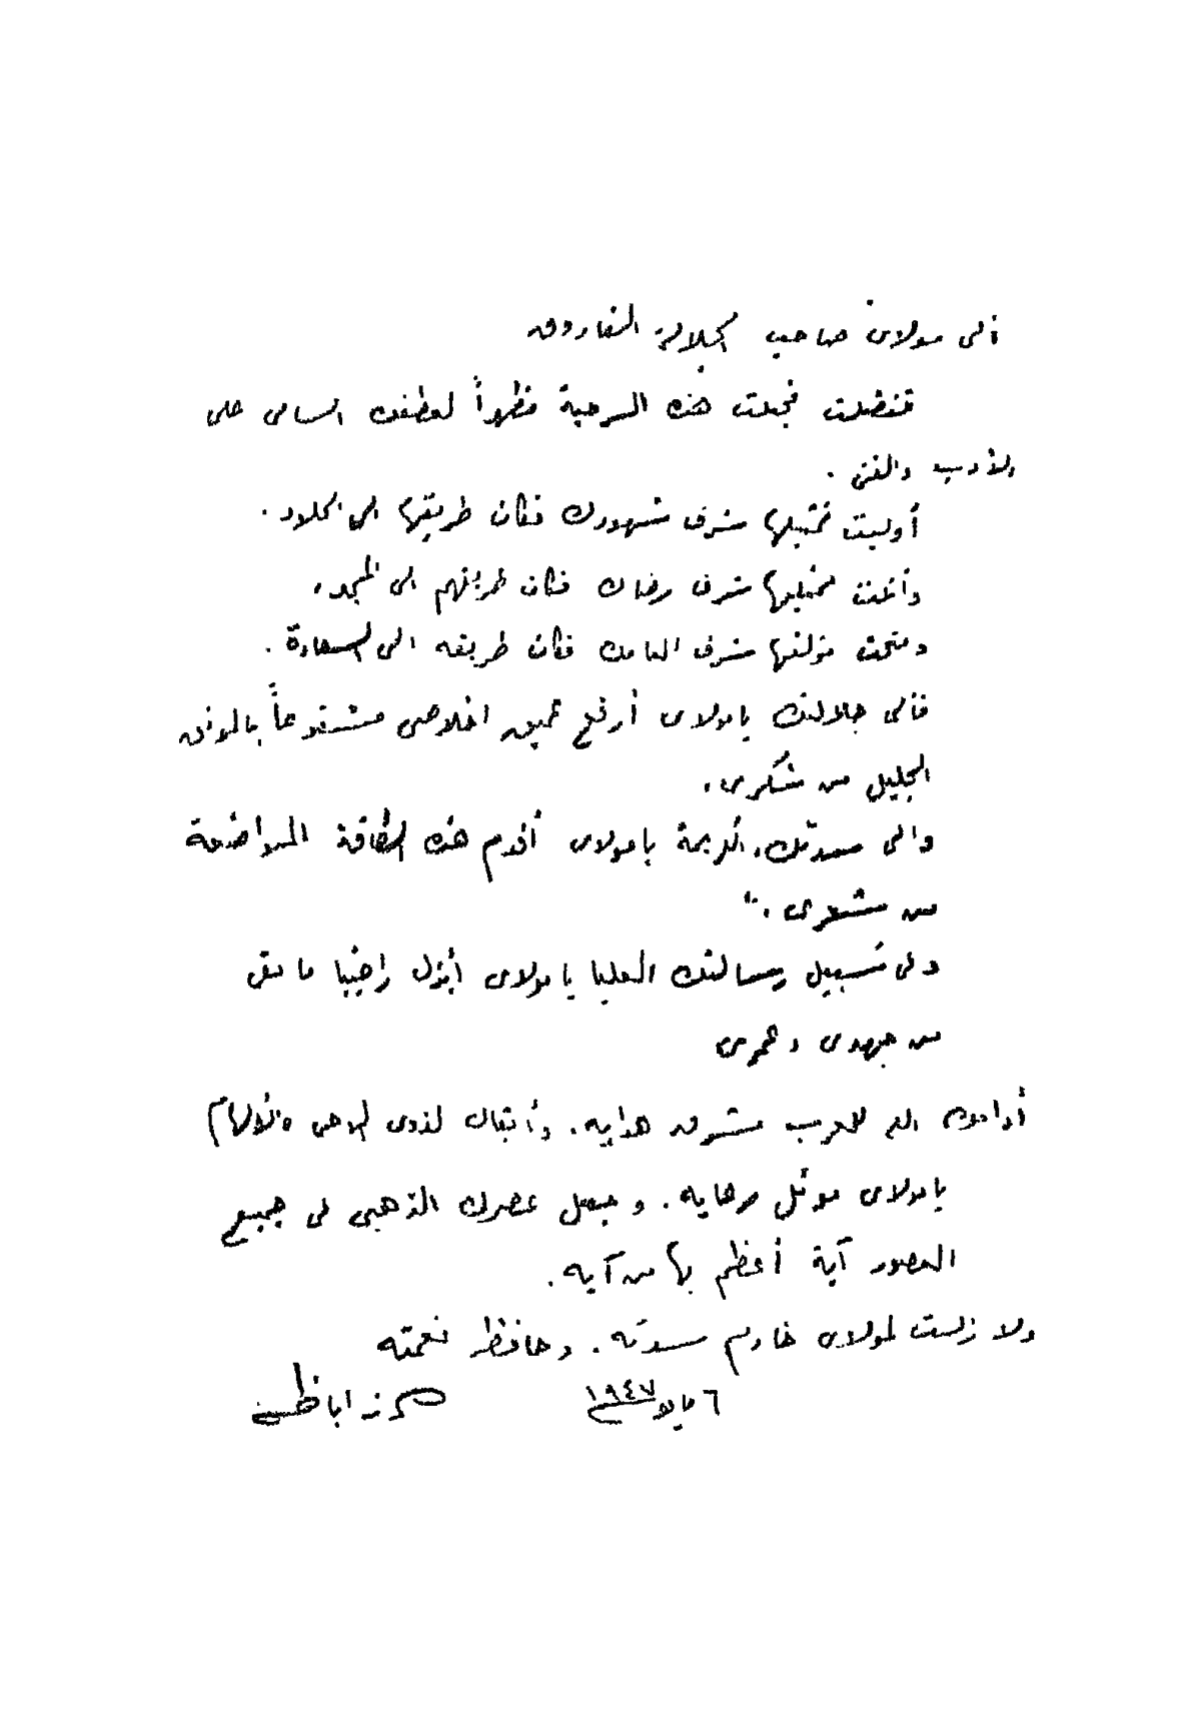 إلى مولاى صاحب الجلالة الفاروق
تفضلت فجعلت هذه المسرحية مظهراً لعطفك السامى على
الأدب والفن .
أوليت تمثيلها شرف شهودك فكان طريقها الى الخلود .
وأنلت ممثليها شرف رضاك فكان طريقهم الى المجد .
ومنحت مؤلفها شرف انعامك فكان طريقه الى السعادة .
فإلى جلالتك يا مولاى أرفع عميق اخلاصى مشفوعاً بالموفى
الجليل من شكرى .
والى سدتك الكريمة يا مولاى أقدم هذه الطاقة المتواضعة
من شعرى .
وفى سبيل رسالتك العليا يا مولاى أبذل راضيا ما بقى
من جهدى وعمرى
أدامك الله للعرب مشرق هدايه . وأبقاك لذوى الوحى والإلهام
يا مولاى موئل رعايه . وجعل عصرك الذهبى فى جميع
العصور آية أعظم بها من آيه .
ولا زلت لمولاى خادم سدته . وحافظ نعمته
٦ مايو ١٩٤٧ عزيز اباظه